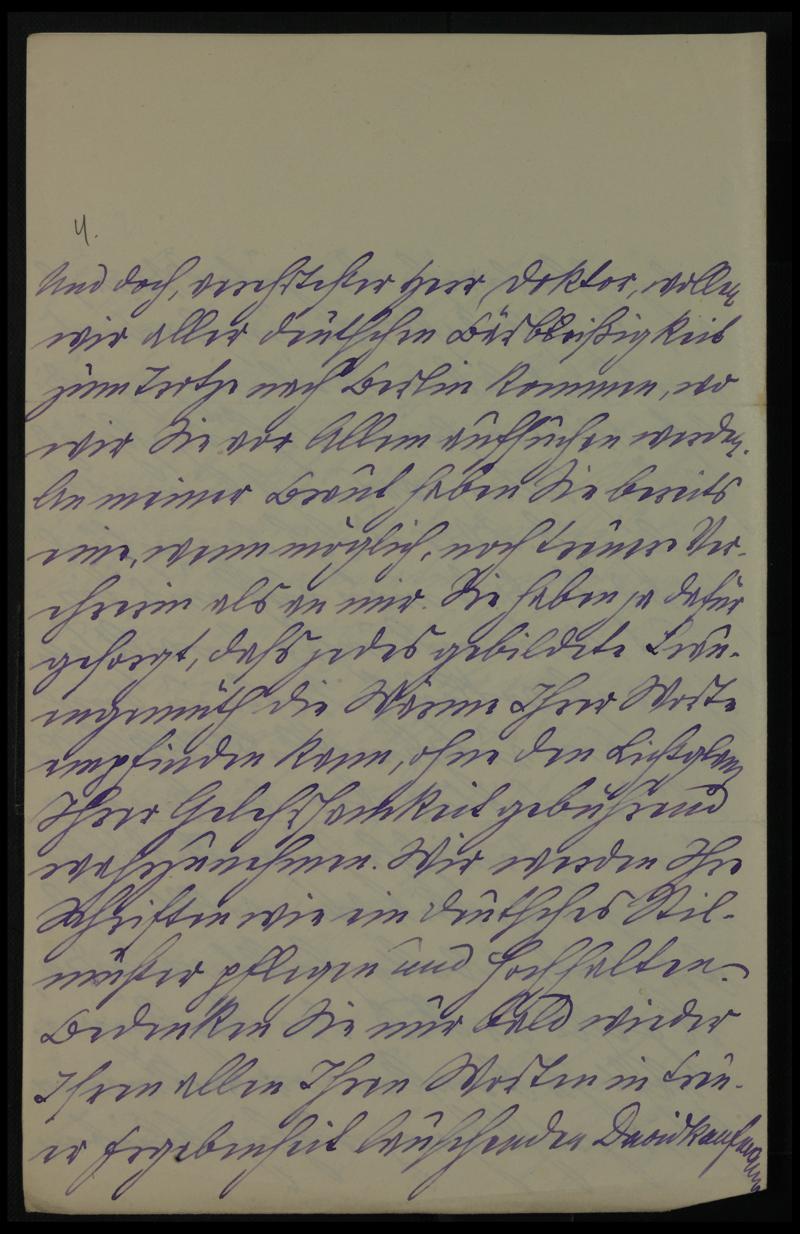 4.
Und doch, verehrtester Herr Doktor, wollen
wir aller deutschen Bärbeißigkeit
zum Trotze nach Berlin kommen, wo
wir Sie vor Allem aufsuchen werden.
An meiner Braut haben Sie bereits
eine, wenn möglich, noch treuere Ver-
ehrerin als an mir. Sie haben ja dafür
gesorgt, dass jedes gebildete
die Wärme Ihrer Worte
empfinden kann, ohne den Lichtglanz
Ihrer Gelehrsamkeit gebührend
wahrzunehmen. Wir werden Ihre
Schriften wie ein deutsches Stil-
muster pflegen und hochhalten.
Bedenken Sie nur bald wieder
Ihren allen Ihren Worten in treu-
er Ergebenheit lauschenden David Kaufmann